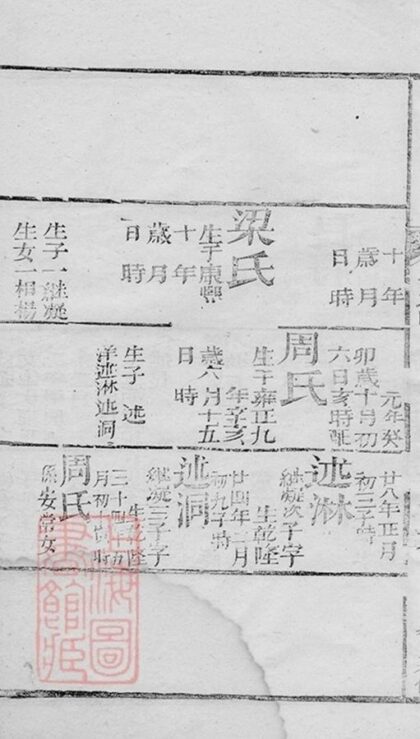 十年
歲月
日時
梁氏
生于康熙
十年
歲月
日時
生子一継凝
生女一相楊
元年癸
卯歲十月初
六日亥時
周氏
生于雍正九
年辛亥
歲六月十五
日時
生子述
洋述淋述洞
廿八年正月
初三子時
述淋
継凝次子字
生乾隆
廿四年二月
初九子時
述洞
継凝三子字
生乾隆
三十四年九
月初時
周氏
係安常女
海圖
書館